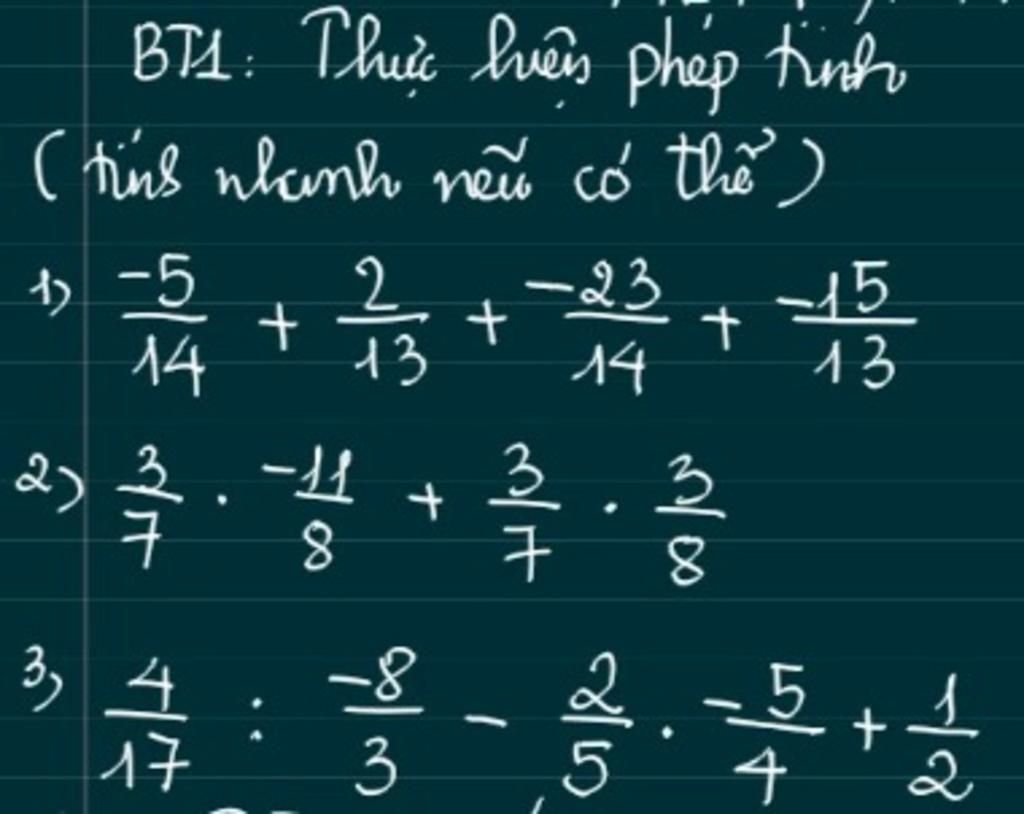 BT1: Thực hiện phép tính
(tính nhanh nếu có thể)
1) -5/14 + 2/13 + -23/14 + -15/13
2) 3/7 . -11/8 + 3/7 . 3/8
3) 4/17 : -8/3 - 2/5 . -5/4 + 1/2